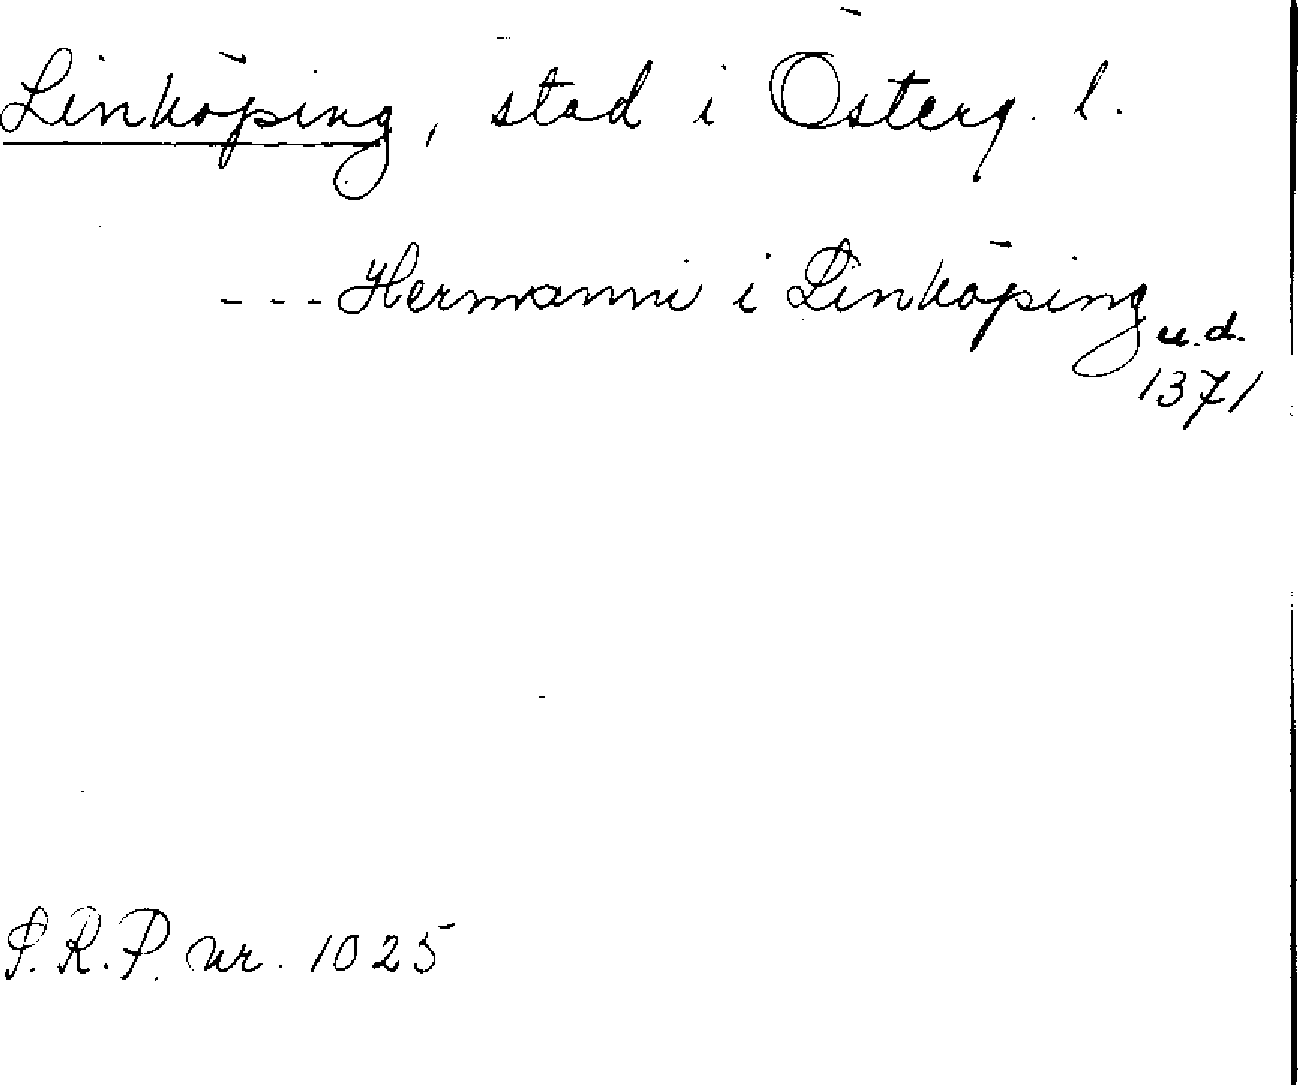 Linköping, stad i Österg. l.
--- Hermanni i Linköping
u.d.
1371
S.R.P. nr. 1025